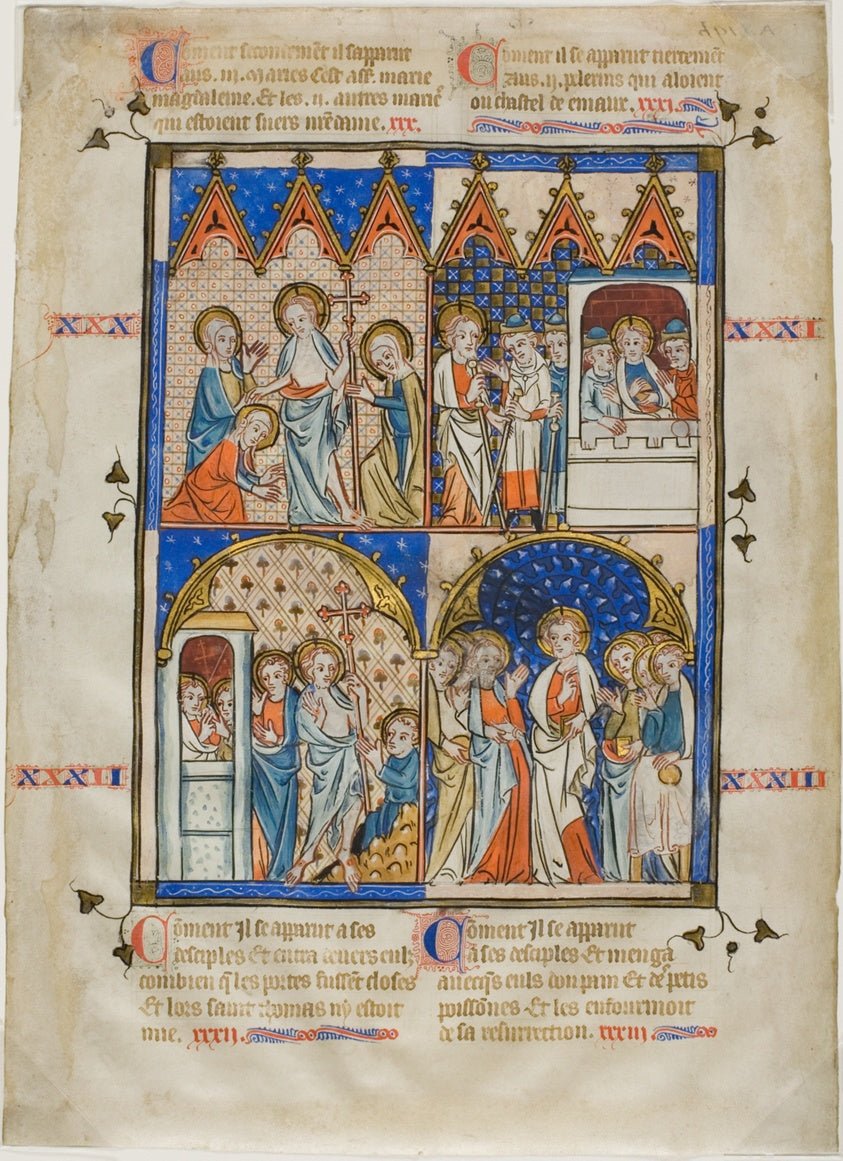 Coment secondemēt il sapparut
aus .iii. Maries Cest ass. marie
magdaleine. Et les .ii. autres marieˢ
qui estoient suers nrēdame. xxx.
Coment il se apparut tiercemēt
aus .ii. pelerins qui aloient
ou chastel de emaux. xxxi.
XXX
XXXI
XXXII
XXXIII
Cōment Il se apparut a ses
desciples Et entra
combien q̄ les portes fussēt closes
Et lors saint thomas ny estoit
mie. xxxii.
Cōment Il se apparut
a ses desciples Et menga
auecqs euls dou pain Et de petis
poissōnes Et les enfourmoit
de sa resurrection. xxxiii